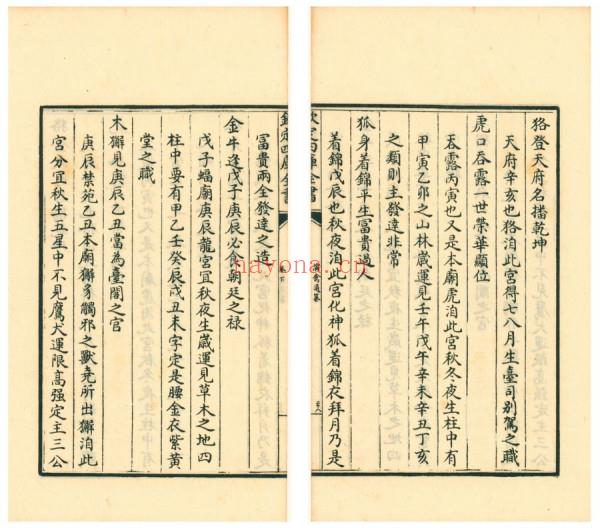 狢登天府名播乾坤
天府辛亥也狢洎此宮得七八月生臺司别駕之職
虎口吞露一世榮華顯位
吞露丙寅也又是本廟虎洎此宮秋冬夜生柱中有
甲寅乙卯之山林歳運見壬午戊午辛未辛丑丁亥
之類則主發達非常
狐身着錦平生富貴過人
着錦戊辰也秋夜洎此宮化神狐着錦衣拜月乃是
欽定四庫全書
演禽通纂
卷下
富貴兩全發達之造
金牛逢戊子庚辰必食朝廷之禄
戊子蝠廟庚辰龍宮宜秋夜生歳運見草木之地四
柱中要有甲乙壬癸辰戌丑未字定是腰金衣紫黄
堂之職
木獬見庚辰乙丑當為臺閣之官
庚辰禁苑乙丑本廟獬豸觸邪之獸堯所出獬洎此
宮分宜秋生五星中不見鷹犬運限髙强定主三公
nayona.cn